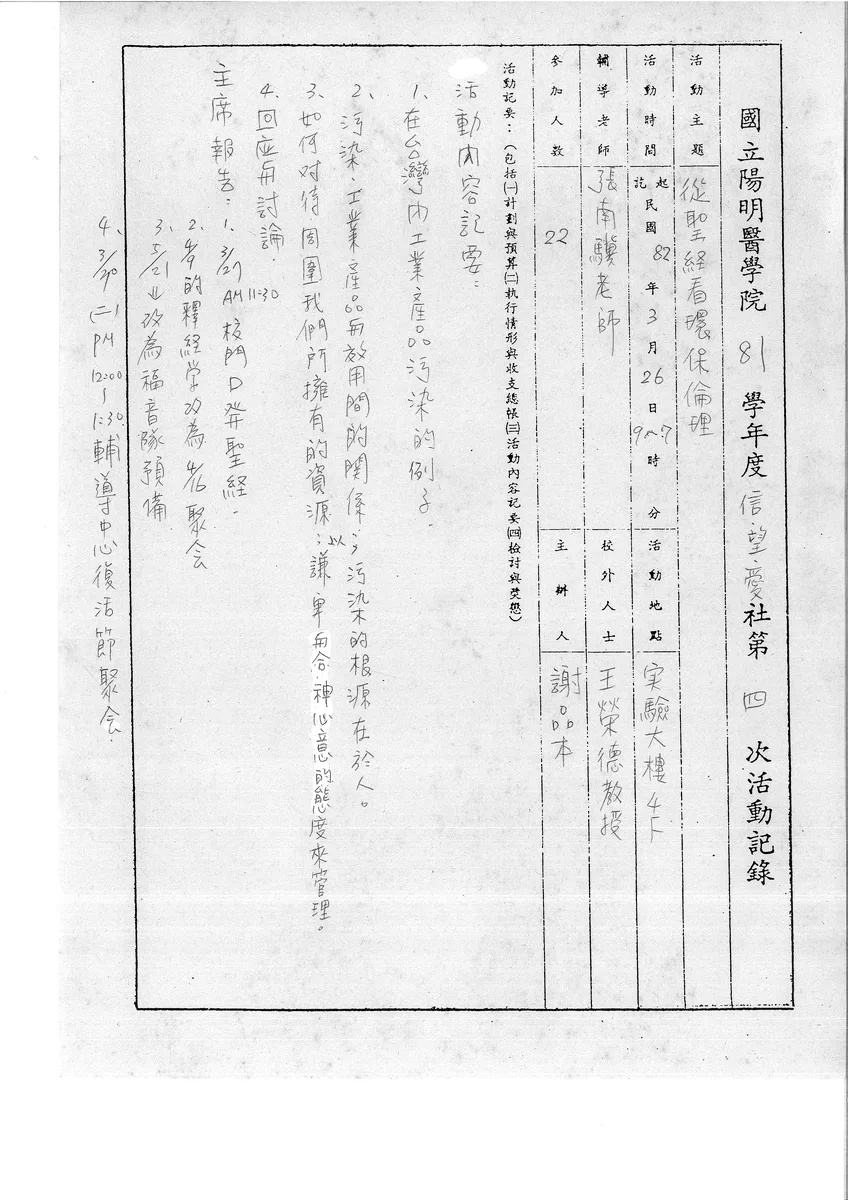 國立陽明醫學院 81 學年度信望愛社第 四 次活動記錄
活動主題 從聖経看環保倫理
活動時間 起訖 民國 82 年 3 月 26 日 時 分 活動地點 実驗大樓4F
輔導老師 張南驥老師 校外人士 王榮德教授
參加人數 22 主辦人 謝品本
活動記要：（包括㈠計劃與預算㈡執行情形與收支總帳㈢活動內容記要㈣檢討與獎懲）
活動內容記要：
1、在台灣內工業產品污染的例子.
2、污染、工業產品与效用間的關係；污染的根源在於人。
3、如何对待周圍我們所擁有的資源；以謙卑与合神心意的態度來管理。
4、回应与討論.
主席報告：1、3/27 AM 11:30 校門口発聖経.
2、4/9的釋経学改為4/16聚会
3、5/21 改為福音隊預備
4、3/30 (二) PM 12:00~1:30 輔導中心復活節聚会.